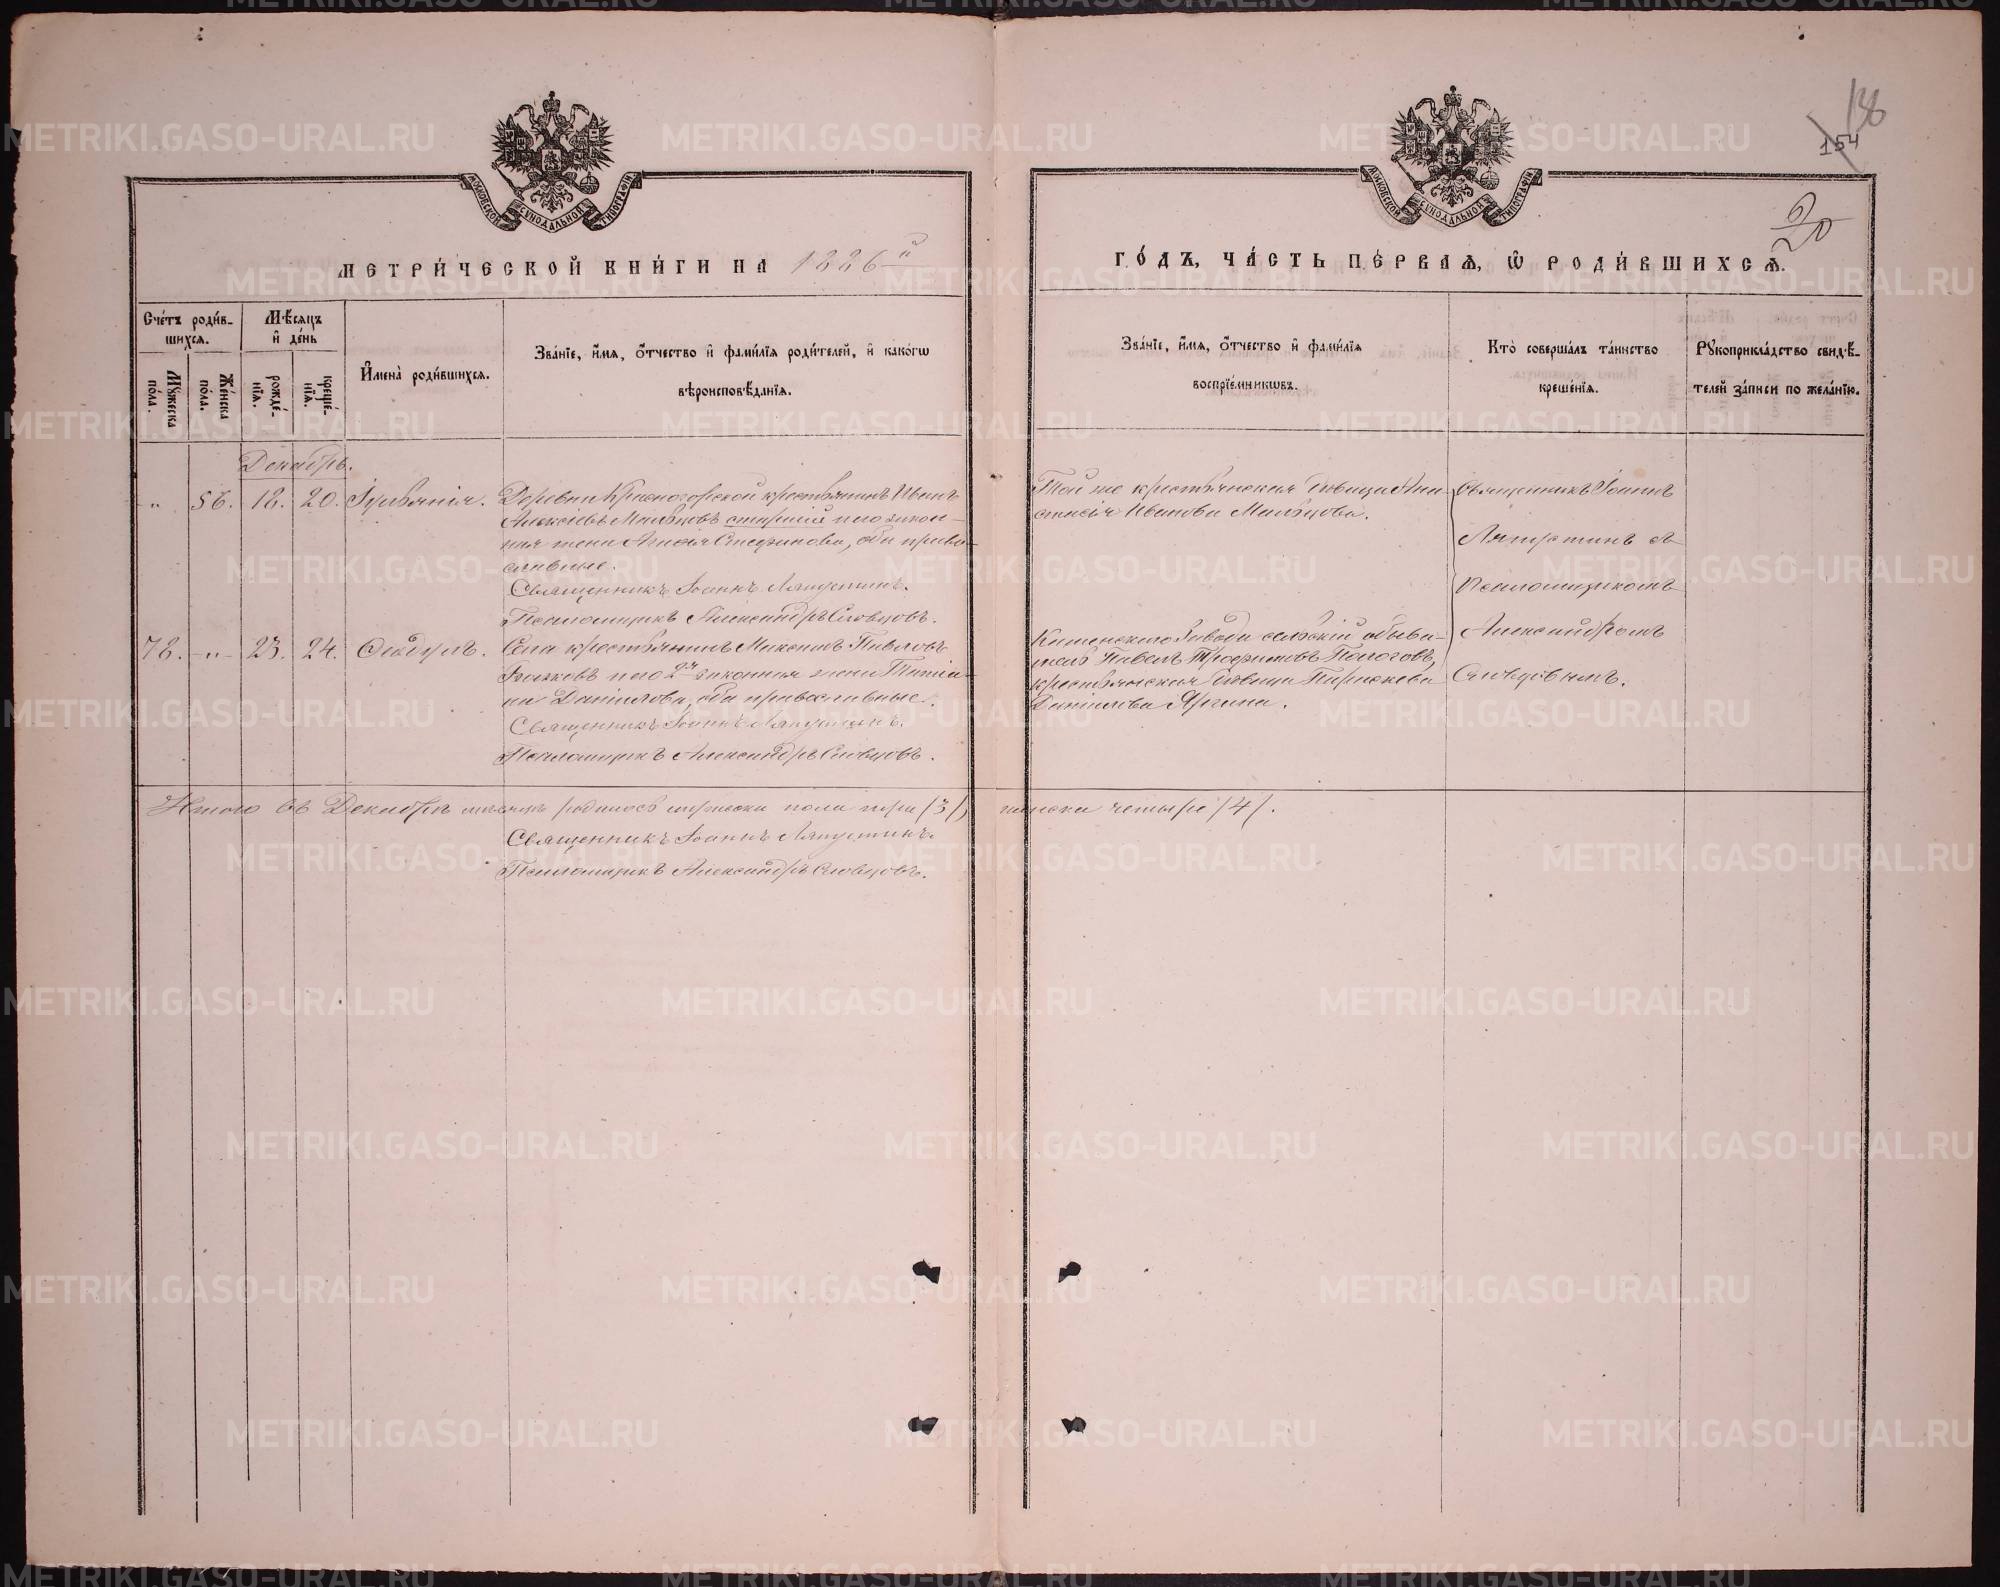 138
154
20
МОСКОВСКОЙ СУНОДАЛЬНОЙ ТИПОГРАФІИ
МОСКОВСКОЙ СУНОДАЛЬНОЙ ТИПОГРАФІИ
МЕТРИ́ЧЕСКОЙ КНИ́ГИ НА 1886й
ГО́ДЪ, ЧА́СТЬ ПЕ́РВАѦ, Ѡ҆ РОДИ́ВШИХСѦ.
Сче́тъ роди́в-
шихсѧ.
Мѣ́сѧцъ
и҆ де́нь
Мꙋ́жеска
по́ла.
Же́нска
по́ла.
рожде́-
нїѧ.
креще́-
нїѧ.
И҆мена̀ роди́вшихсѧ.
Зва́нїе, и҆́мѧ, ѻ҆́тчество и҆ фами́лїѧ роди́телей, и҆ како́гѡ
вѣроисповѣ́данїѧ.
Зва́нїе, и҆́мѧ, ѻ҆́тчество и҆ фами́лїѧ
воспрїе́мниковъ.
Кто̀ соверша́лъ та́инство
креще́нїѧ.
Рꙋкоприкла́дство свидѣ́-
телей за́писи по жела́нїю.
Декабрь.
" 56. 18. 20. Іуліанія. Деревни Красногорской крестьянинъ Иванъ
Алексіевъ Мальцовъ старшій и его закон-
ная жена Агнія Стефанова, оба право-
славные.
Священникъ Іоаннъ Ляпустинъ.
Псаломщикъ Александръ Словцовъ.
Той же крестьянская дѣвица Ана-
стасія Иванова Мальцова.
Священникъ Іоаннъ
Ляпустинъ съ
псаломщикомъ
Александромъ
Словцовымъ.
78. -"- 23. 24. Ѳеодулъ. Села крестьянинъ Максимъ Павловъ
и его 2я законная жена Татіа-
на Даніилова, оба православные.
Священникъ Іоаннъ Ляпустинъ.
Псаломщикъ Александръ Словцовъ.
Каменскаго завода сельскій обыва-
тель Павелъ Трофимовъ Пологовъ,
крестьянская дѣвица Параскева
Даніилова Яргина.
Итого въ Декабрѣ мѣсяцѣ родилось мужеска пола три (3), женска четыре (4).
Священникъ Іоаннъ Ляпустинъ.
Псаломщикъ Александръ Словцовъ.
METRIKI.GASO-URAL.RU